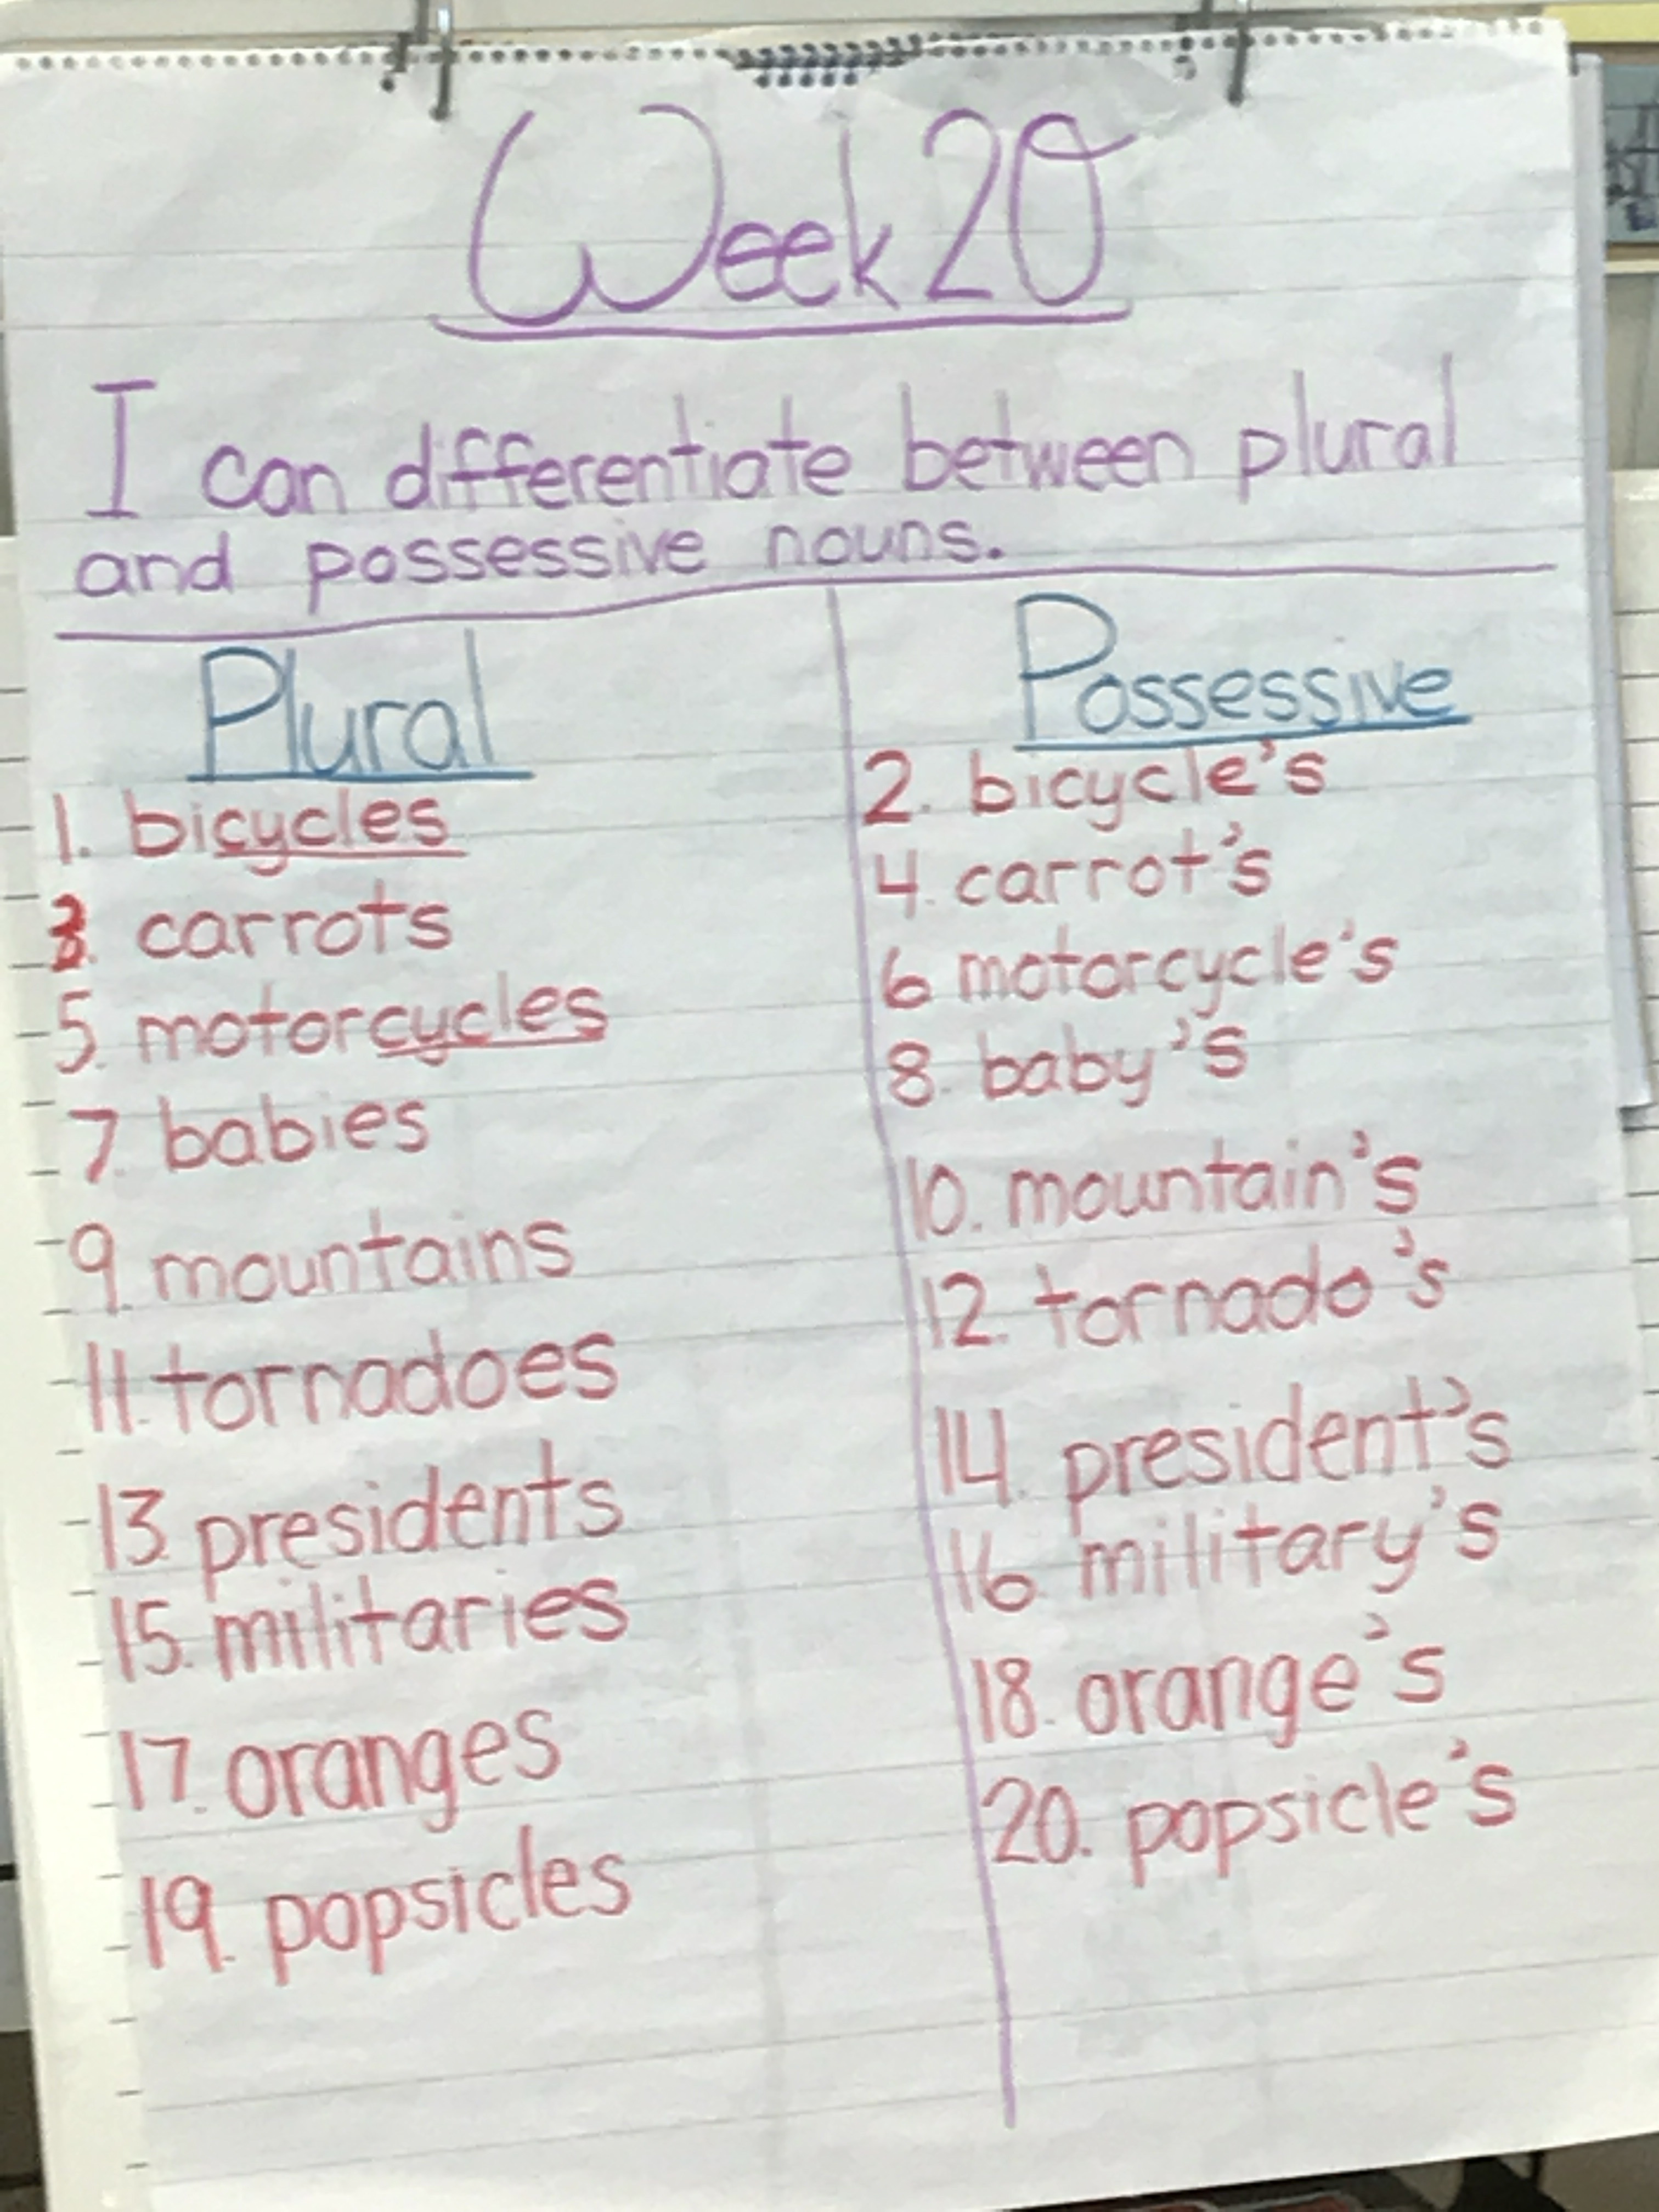 Week 20
I can differentiate between plural
and possessive nouns.
Plural
1. bicycles
3. carrots
5. motorcycles
7. babies
9. mountains
11. tornadoes
13. presidents
15. militaries
17. oranges
19. popsicles
Possessive
2. bicycle's
4. carrot's
6 motorcycle's
8. baby's
10. mountain's
12. tornado's
14. president's
16. military's
18. orange's
20. popsicle's